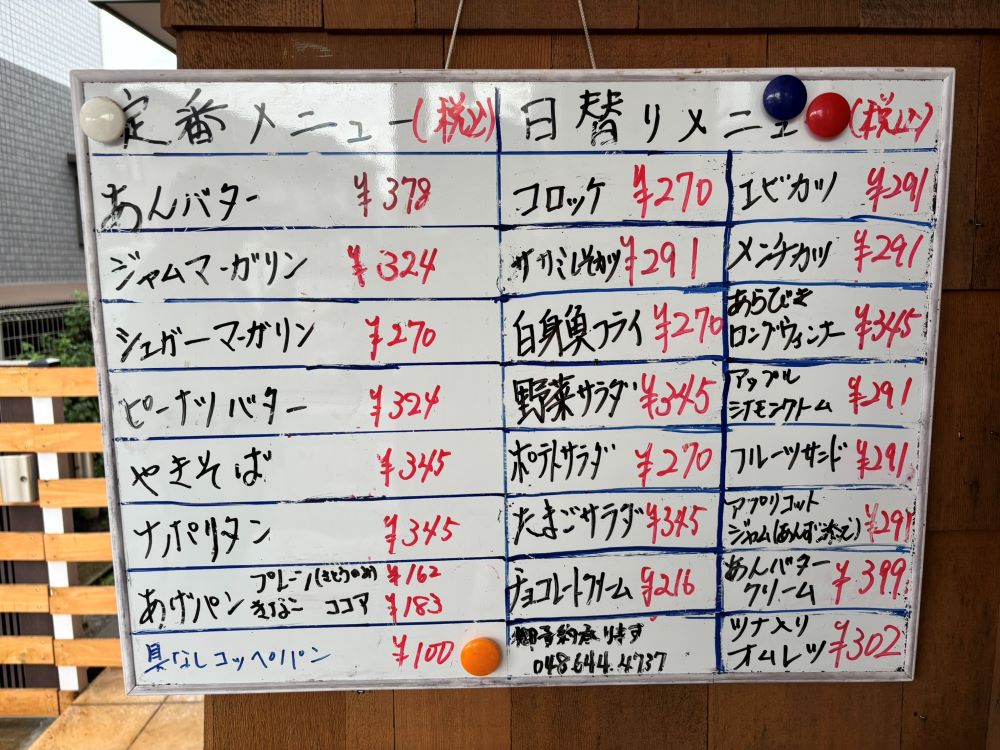 定番メニュー(税込)
あんバター ¥378
ジャムマーガリン ¥324
シュガーマーガリン ¥270
ピーナツバター ¥324
やきそば ¥345
ナポリタン ¥345
あげパン プレーン(さとうのみ) ¥162
きなこ ココア ¥183
具なしコッペパン ¥100
日替りメニュー(税込)
コロッケ ¥270
ササミしそカツ ¥291
白身魚フライ ¥270
野菜サラダ ¥345
ポテトサラダ ¥270
たまごサラダ ¥345
チョコレートクリーム ¥216
御予約承ります
048.644.4737
エビカツ ¥291
メンチカツ ¥291
あらびき
ロングウィンナー ¥345
アップル
シナモンクリーム ¥291
フルーツサンド ¥291
アプリコット
ジャム(あんず) ¥291
あんバター
クリーム ¥399
ツナ入り
オムレツ ¥302